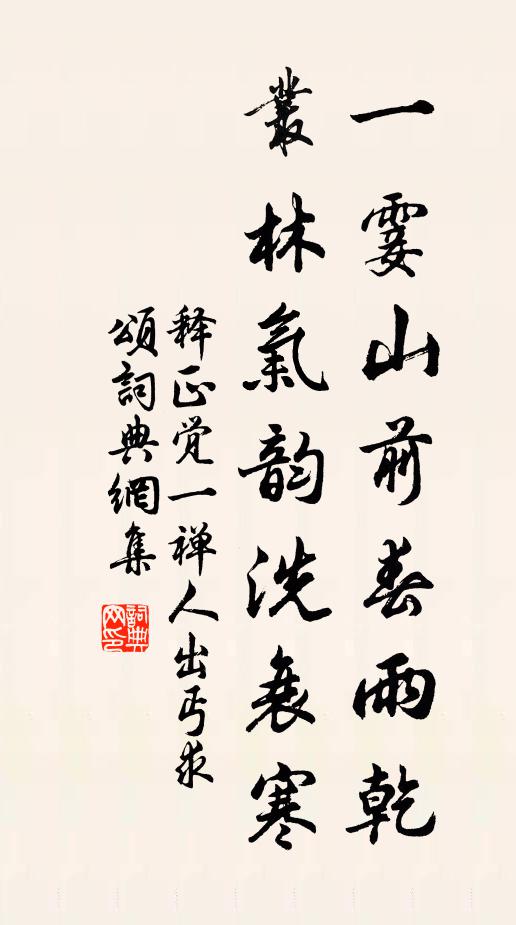 一霎山前春雨乾
叢林氣韵洗衰寒
释正觉一禅人出丐求
頌詞典網集
詞典
网印